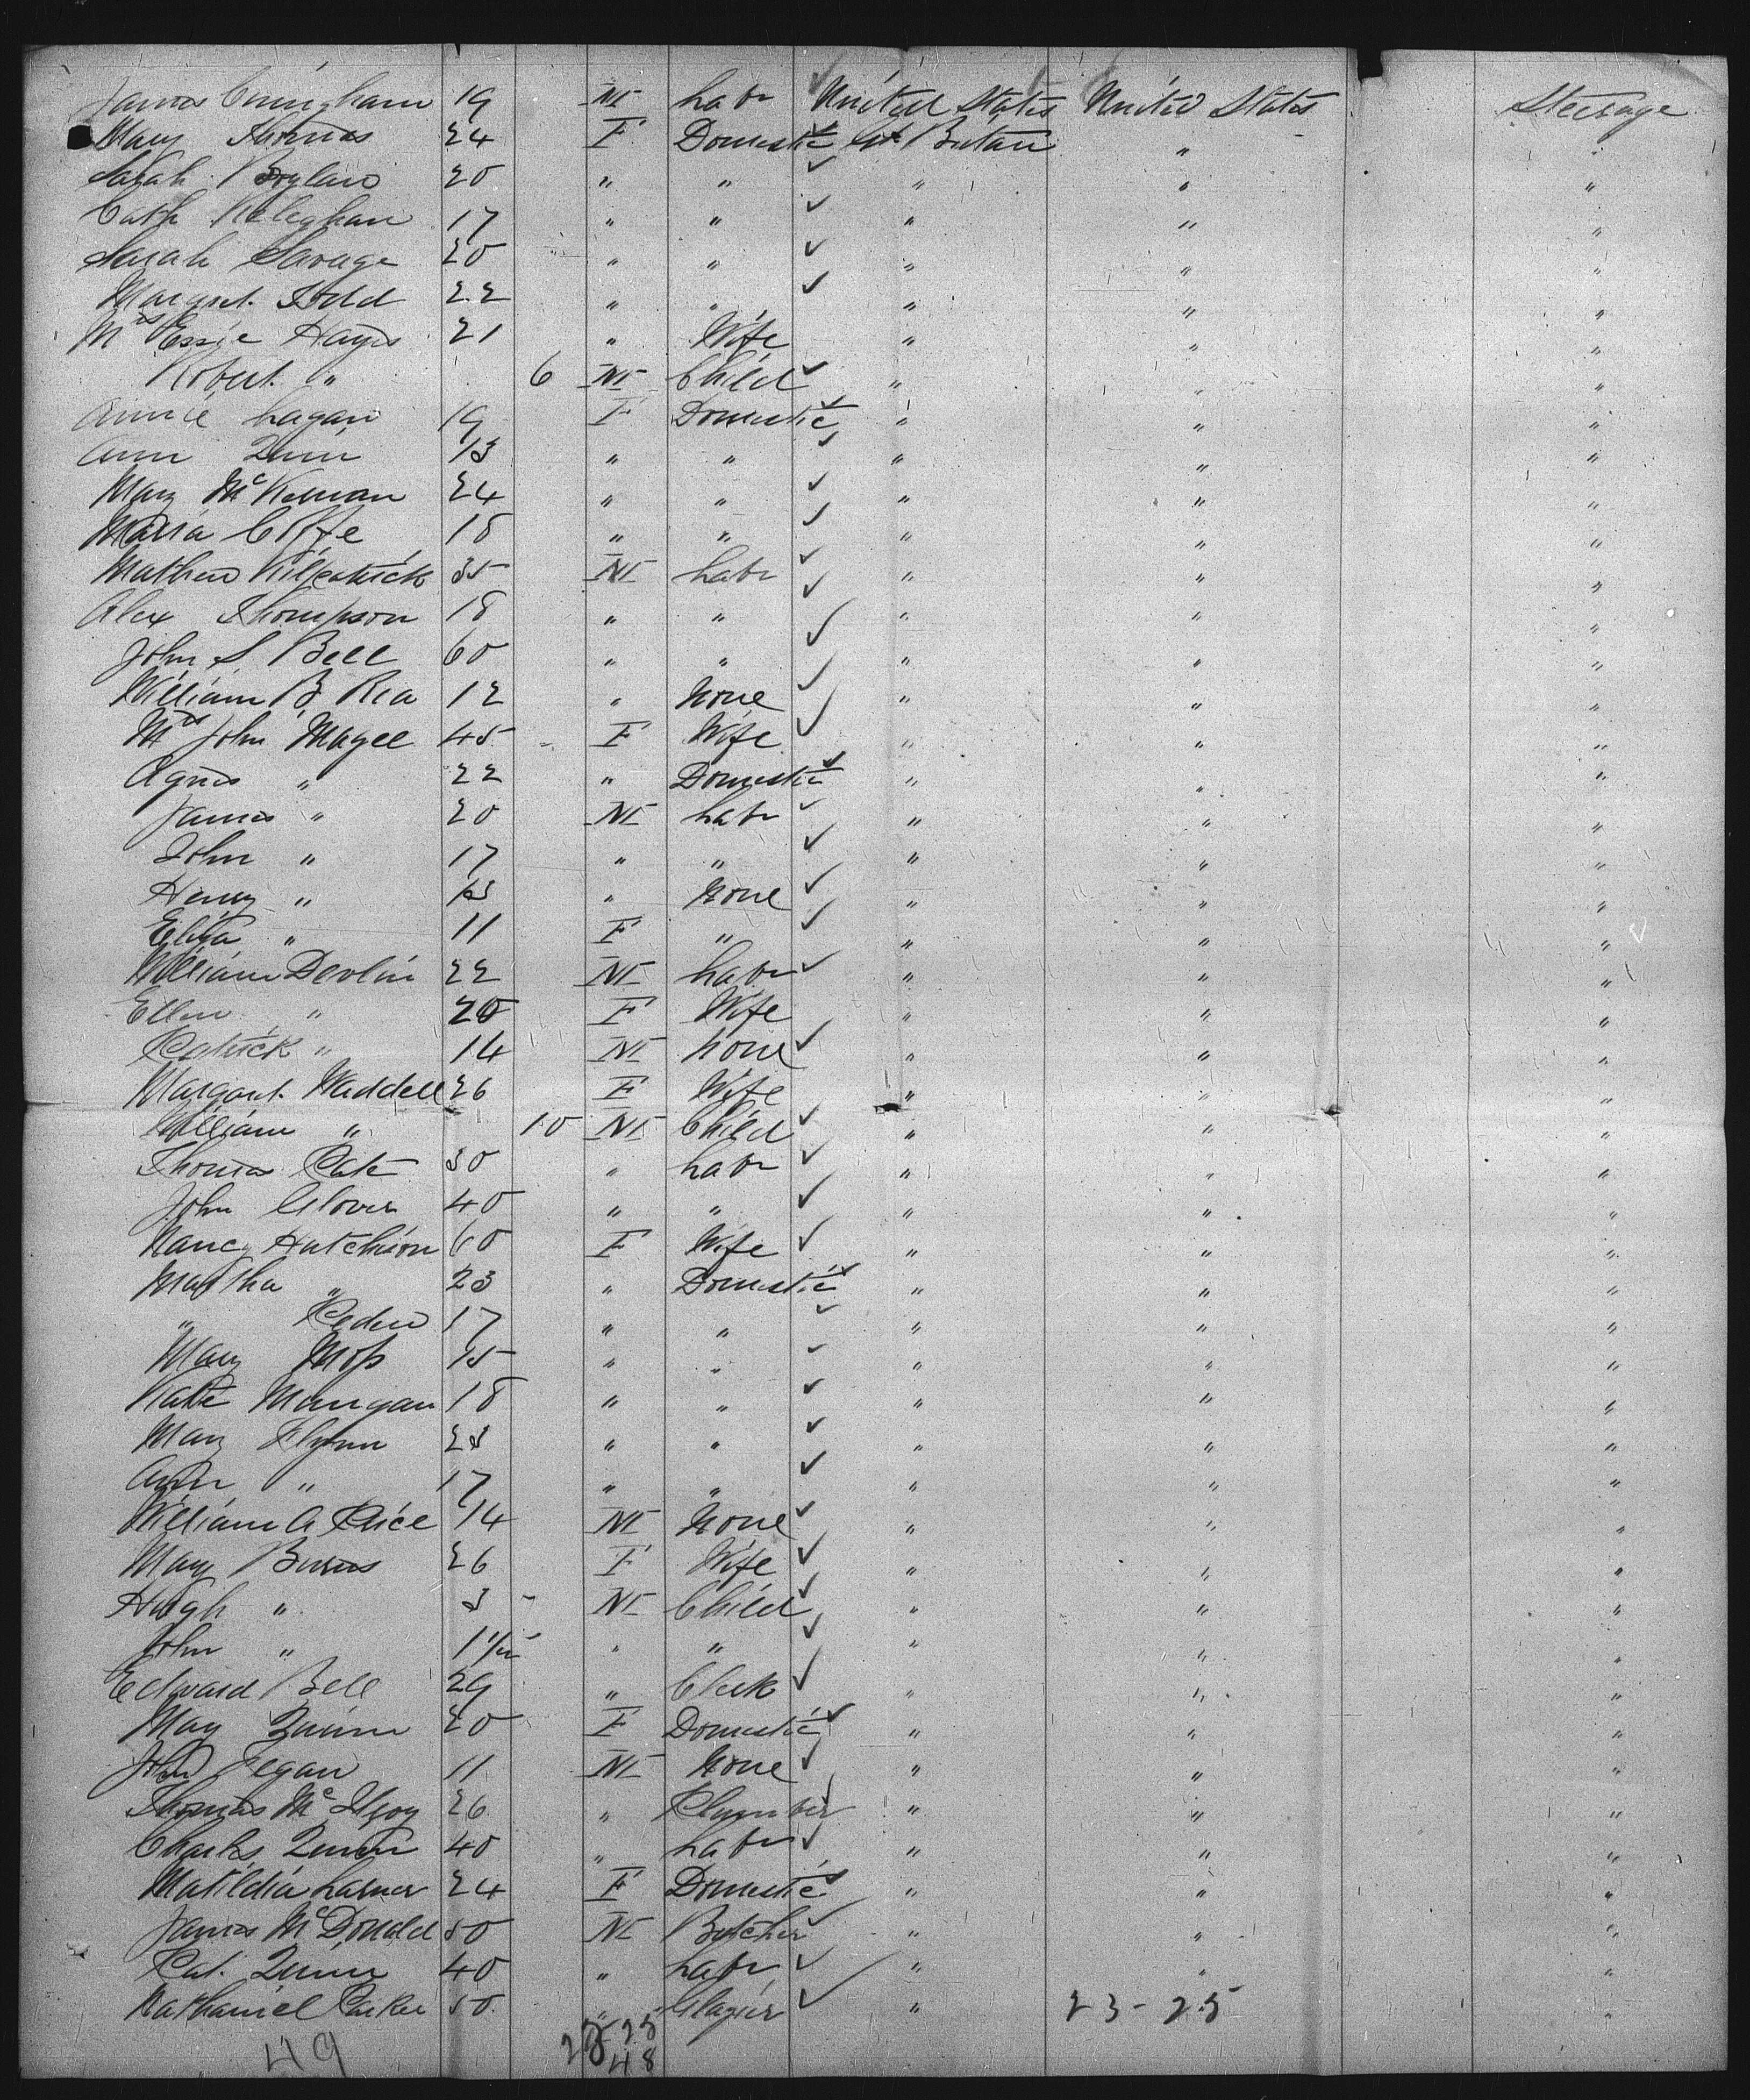 James Cunigham 19 M Labr United States United States Steerage
Mary Thomas 24 F Domestic Gt Britain " "
Sarah Boylan 20 " " " " "
Cath Keleghan 17 " " " " "
Sarah Savage 20 " " " " "
Margret. Todd 22 " " " " "
Mrs Essie Hays 21 " Wife " " "
Robert " 6 M Child " " "
Annie Lagan 19 F Domestic " " "
Ann Quin 13 " " " " "
Mary McKernan 24 " " " " "
Maria 18 " " " " "
Mathew Kilpatrick 35 M Labr " " "
Alex Thompson 18 " " " " "
John S. Bell 60 " " " " "
William B Rea 12 " None " " "
Mrs John Magee 45 F Wife " " "
Agnes " 22 " Domestic " " "
James " 20 M Labr " " "
John " 17 " " " " "
Henry " 13 " None " " "
Eliza " 11 F " " " "
William Devlin 22 M Labr " " "
Ellen " 20 F Wife " " "
Patrick " 14 M None " " "
Margaret. Waddell 26 F Wife " " "
William " 10 M Child " " "
Thomas Pate 30 " Labr " " "
John Glover 40 " " " " "
Nancy Hutchison 60 F Wife " " "
Martha " 23 " Domestic " " "
" Peden 17 " " " " "
Mary Moss 15 " " " " "
Kate Mangan 18 " " " " "
Mary Flynn 23 " " " " "
Ann " 17 " " " " "
William A Price 14 M None " " "
Mary Burns 26 F Wife " " "
Hugh " 3 - M Child " " "
John " 11/12 " " " " "
Edward Bell 29 " Clerk " " "
May Quinn 20 F Domestic " " "
John Fegan 11 M None " " "
Thomas McIlroy 26 " Plumber " " "
Charles Quinn 40 " Labr " " "
Matildia Larner 24 F Domestic " " "
James McDonald 50 M Butcher " " "
Pat. Quinn 40 " Labr " " "
Nathaniel Parker 50 " Glazier " 23-25 "
49 23 25
48